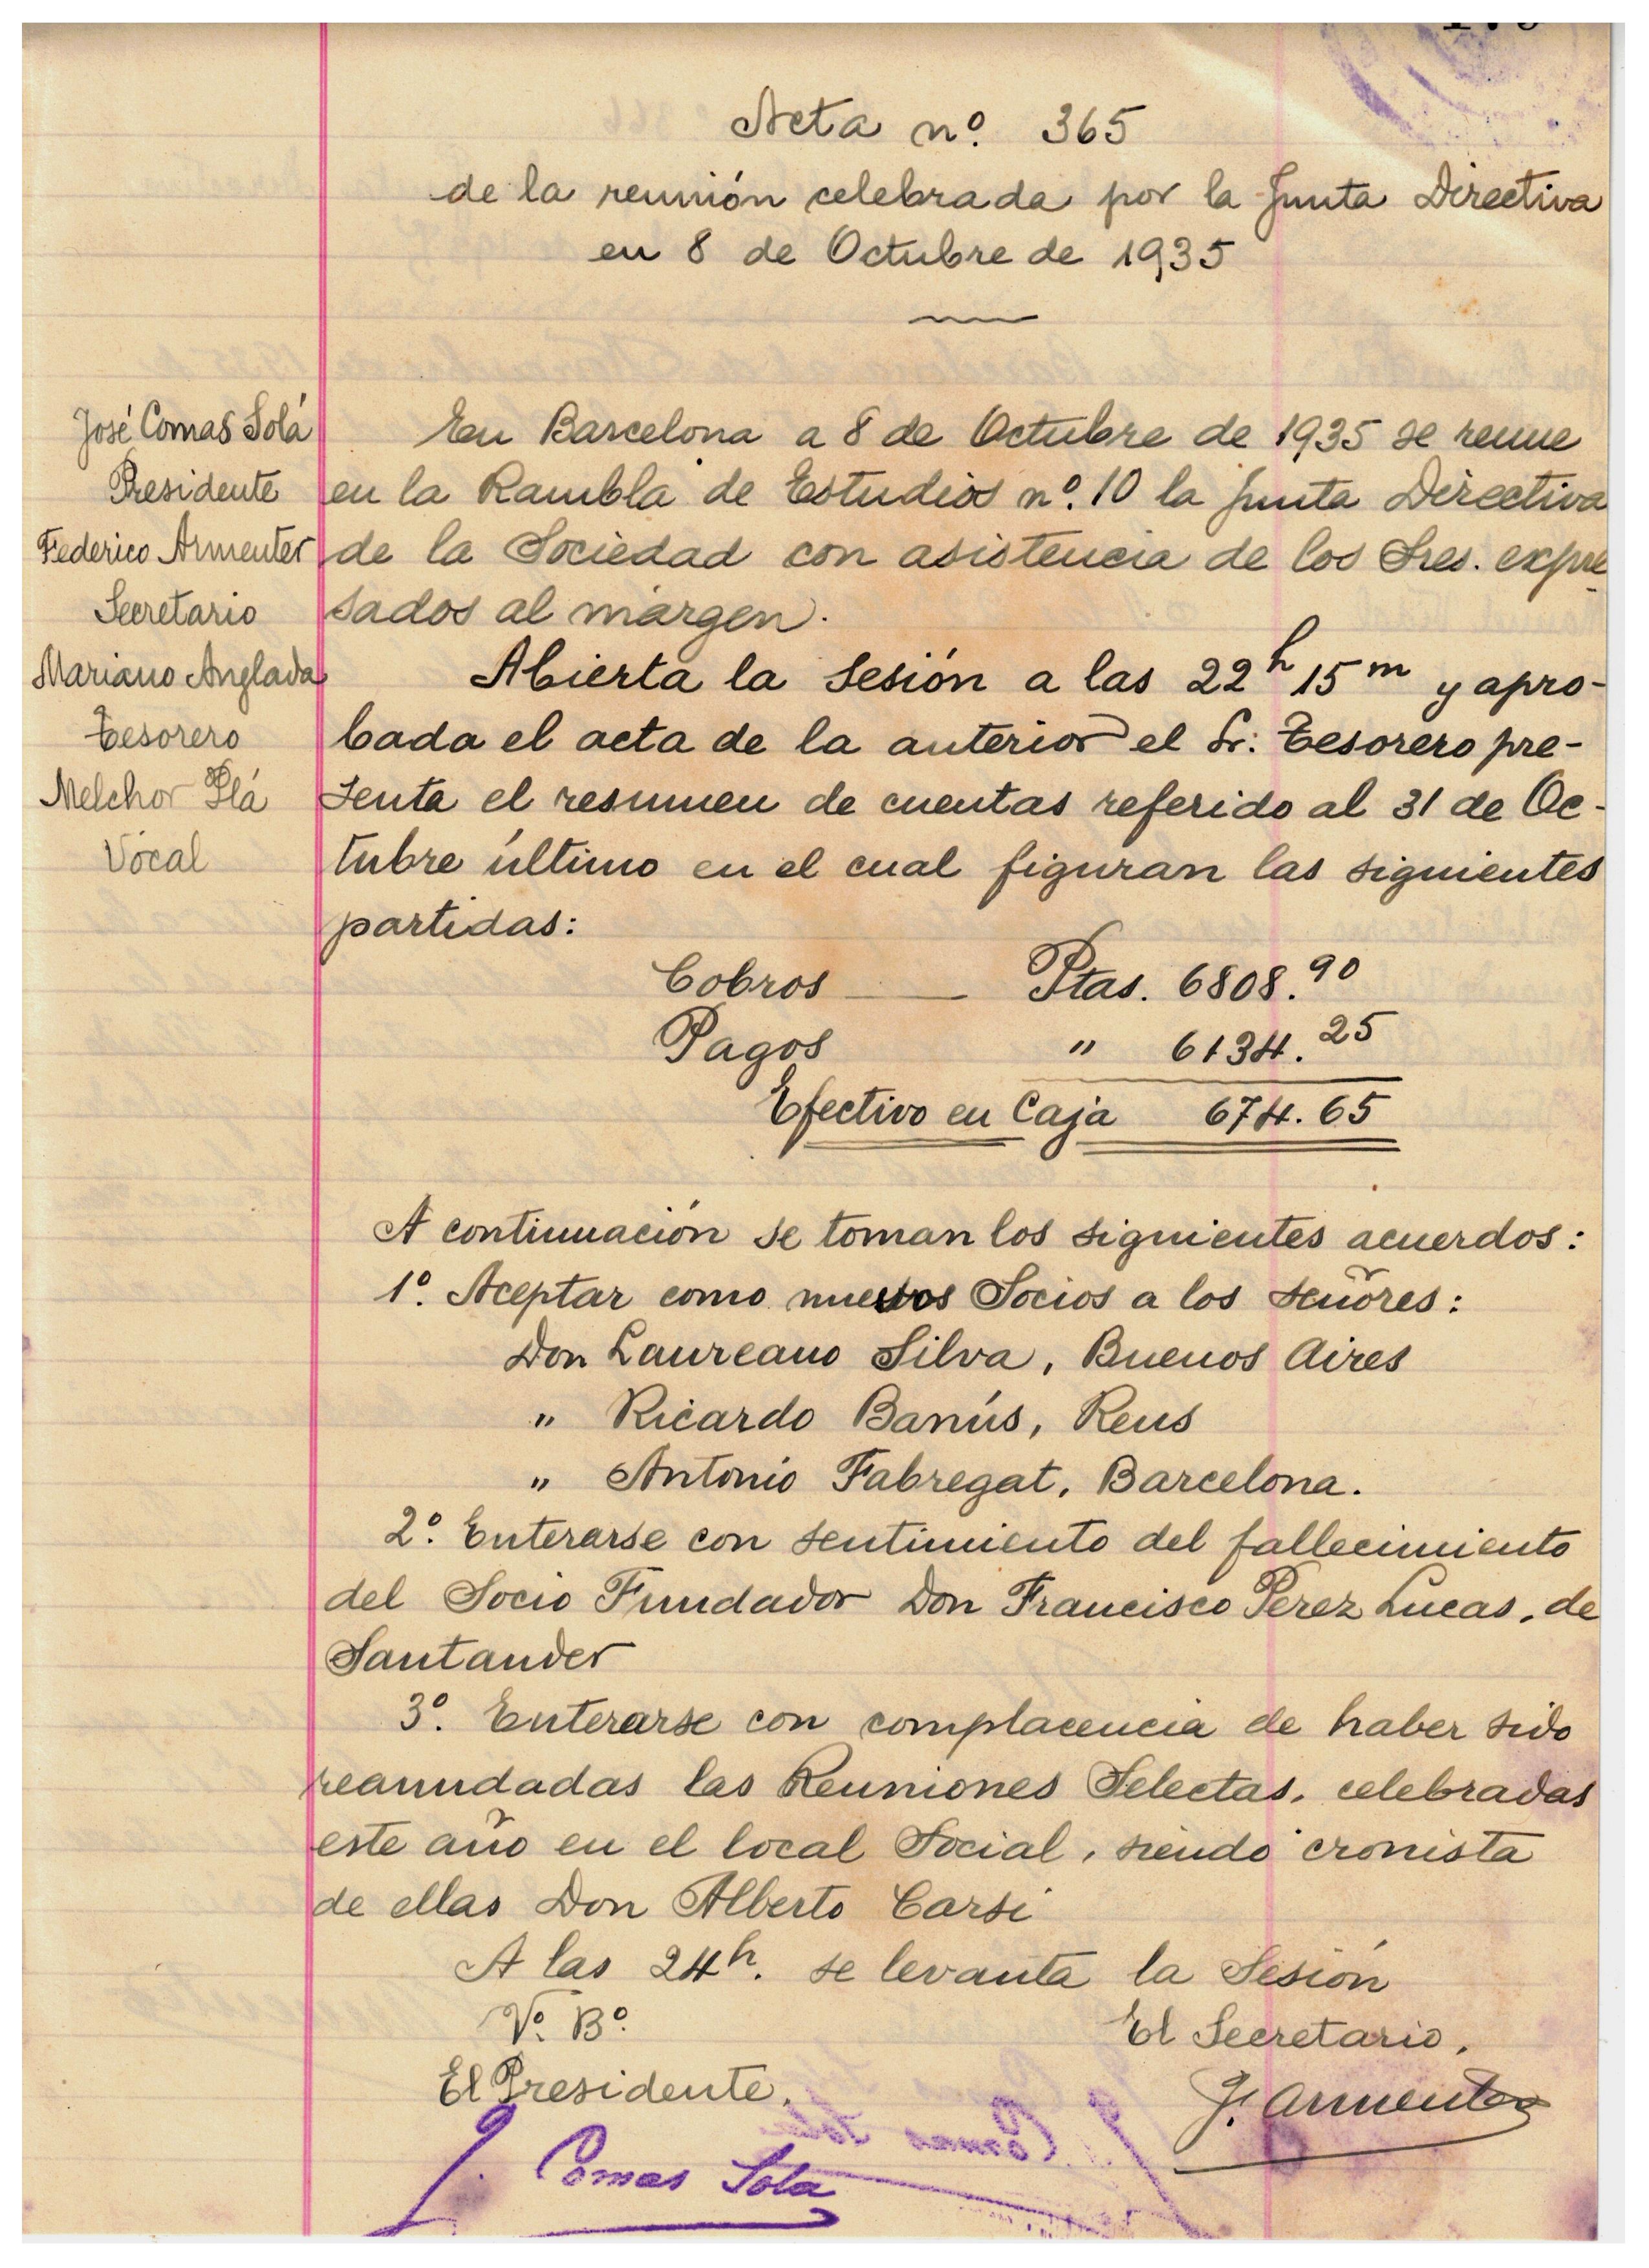 Acta nº. 365
de la reunión celebrada por la Junta Directiva
en 8 de Octubre de 1935
José Comas Solá
Presidente
Federico Armenter
Secretario
Mariano Anglada
Tesorero
Melchor Plá
Vocal
En Barcelona a 8 de Octubre de 1935 se reune
en la Rambla de Estudios nº. 10 la Junta Directiva
de la Sociedad con asistencia de los Sres. expre
sados al márgen.
Abierta la Sesión a las 22h 15m y apro-
bada el acta de la anterior el Sr. Tesorero pre-
senta el resumen de cuentas referido al 31 de Oc-
tubre último en el cual figuran las siguientes
partidas:
Cobros — Ptas. 6808.90
Pagos " 6134.25
Efectivo en Caja 674.65
A continuación se toman los siguientes acuerdos:
1º. Aceptar como nuevos Socios a los señores:
Don Laureano Silva, Buenos Aires
" Ricardo Banús, Reus
" Antonio Fabregat, Barcelona.
2º. Enterarse con sentimiento del fallecimiento
del Socio Fundador Don Francisco Perez Lucas, de
Santander
3º. Enterarse con complacencia de haber sido
reanudadas las Reuniones Selectas, celebradas
este año en el local Social, siendo cronista
de ellas Don Alberto Carsi
A las 24h. se levanta la Sesión
Vº. Bº.
El Secretario,
El Presidente,
F. Armenter
J. Comas Sola